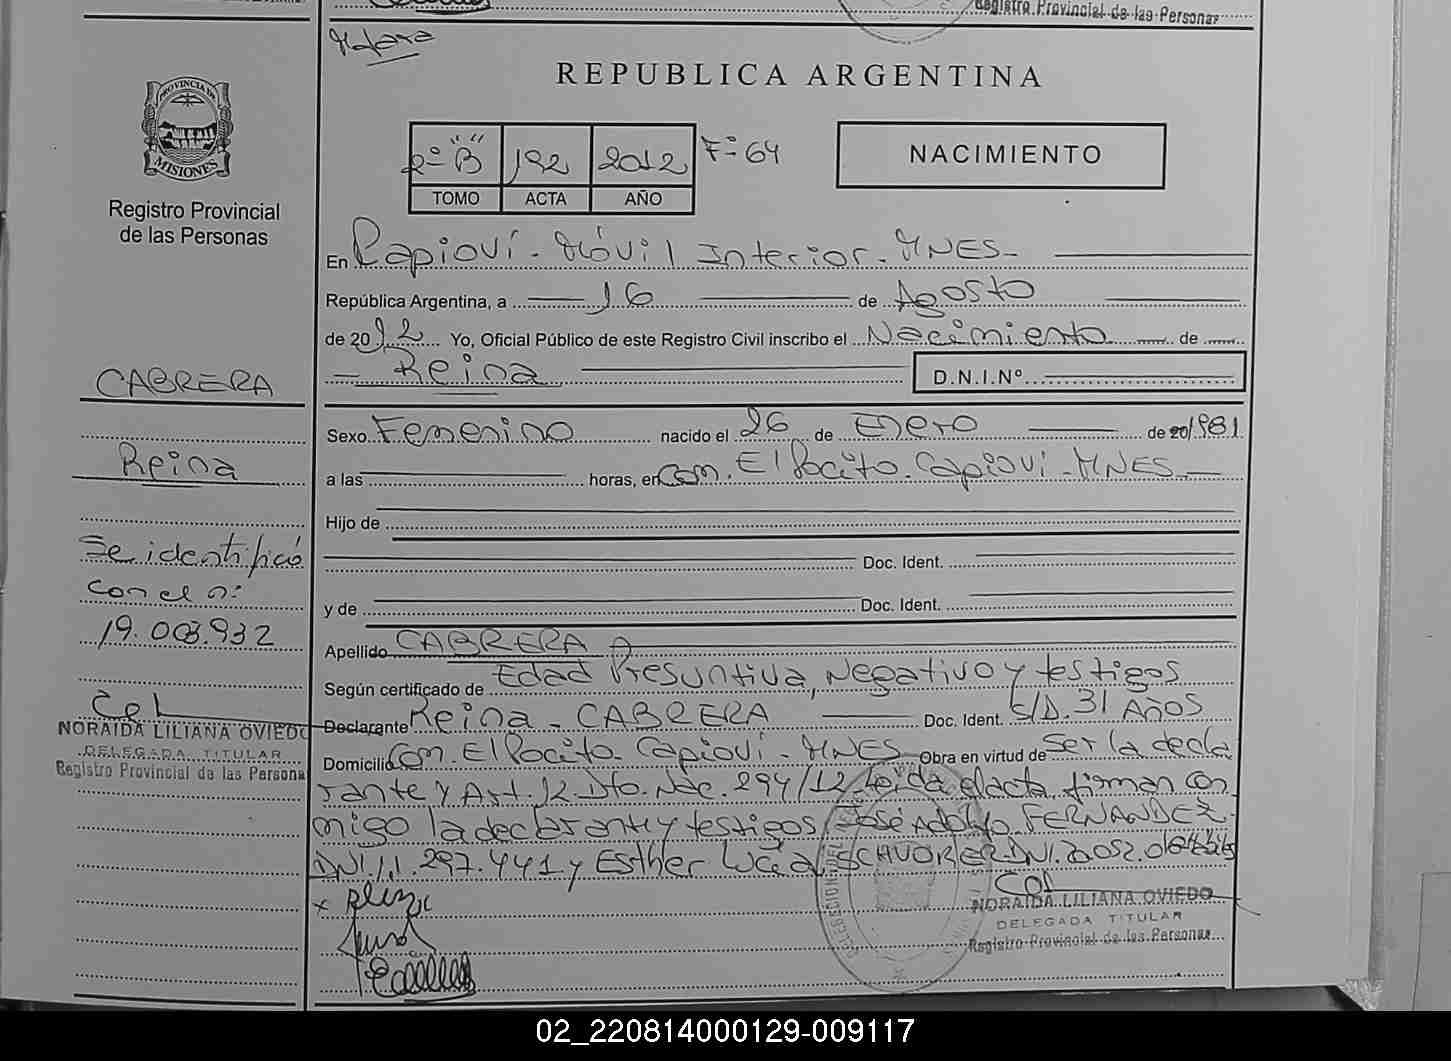 Registro Provincial de las Personas
REPUBLICA ARGENTINA
PROVINCIA DE
MISIONES
Registro Provincial
de las Personas
2º "B" 192 2012 Fº 64
TOMO ACTA AÑO
NACIMIENTO
En Capioví - Móvil Interior - MNES -
República Argentina, a 16 de Agosto
de 2012 Yo, Oficial Público de este Registro Civil inscribo el Nacimiento de
Reina D.N.I.Nº
CABRERA
Reina
Se identificó
con el nº
19.003.932
NORAIDA LILIANA OVIEDO
DELEGADA TITULAR
Registro Provincial de las Persona
Sexo Femenino nacido el 26 de Enero de 20/1981
a las horas, en Com. El Pocito - Capioví - MNES -
Hijo de
Doc. Ident.
y de Doc. Ident.
Apellido CABRERA
Según certificado de Edad Presuntiva, Negativo y testigos
Declarante Reina - CABRERA Doc. Ident. S/D. 31 Años
Domicilio Com. El Pocito - Capioví - MNES Obra en virtud de ser la decla
rante y Art. 12 Dto. Nac. 294/12 - Leída el acta, firman con
migo la declarante y testigos, José Adolfo FERNANDEZ -
DNI. 11.297.441 y Esther Lucía SCHVORER - DNI. 20.052.
NORAIDA LILIANA OVIEDO
DELEGADA TITULAR
Registro Provincial de las Personas
02_220814000129-009117